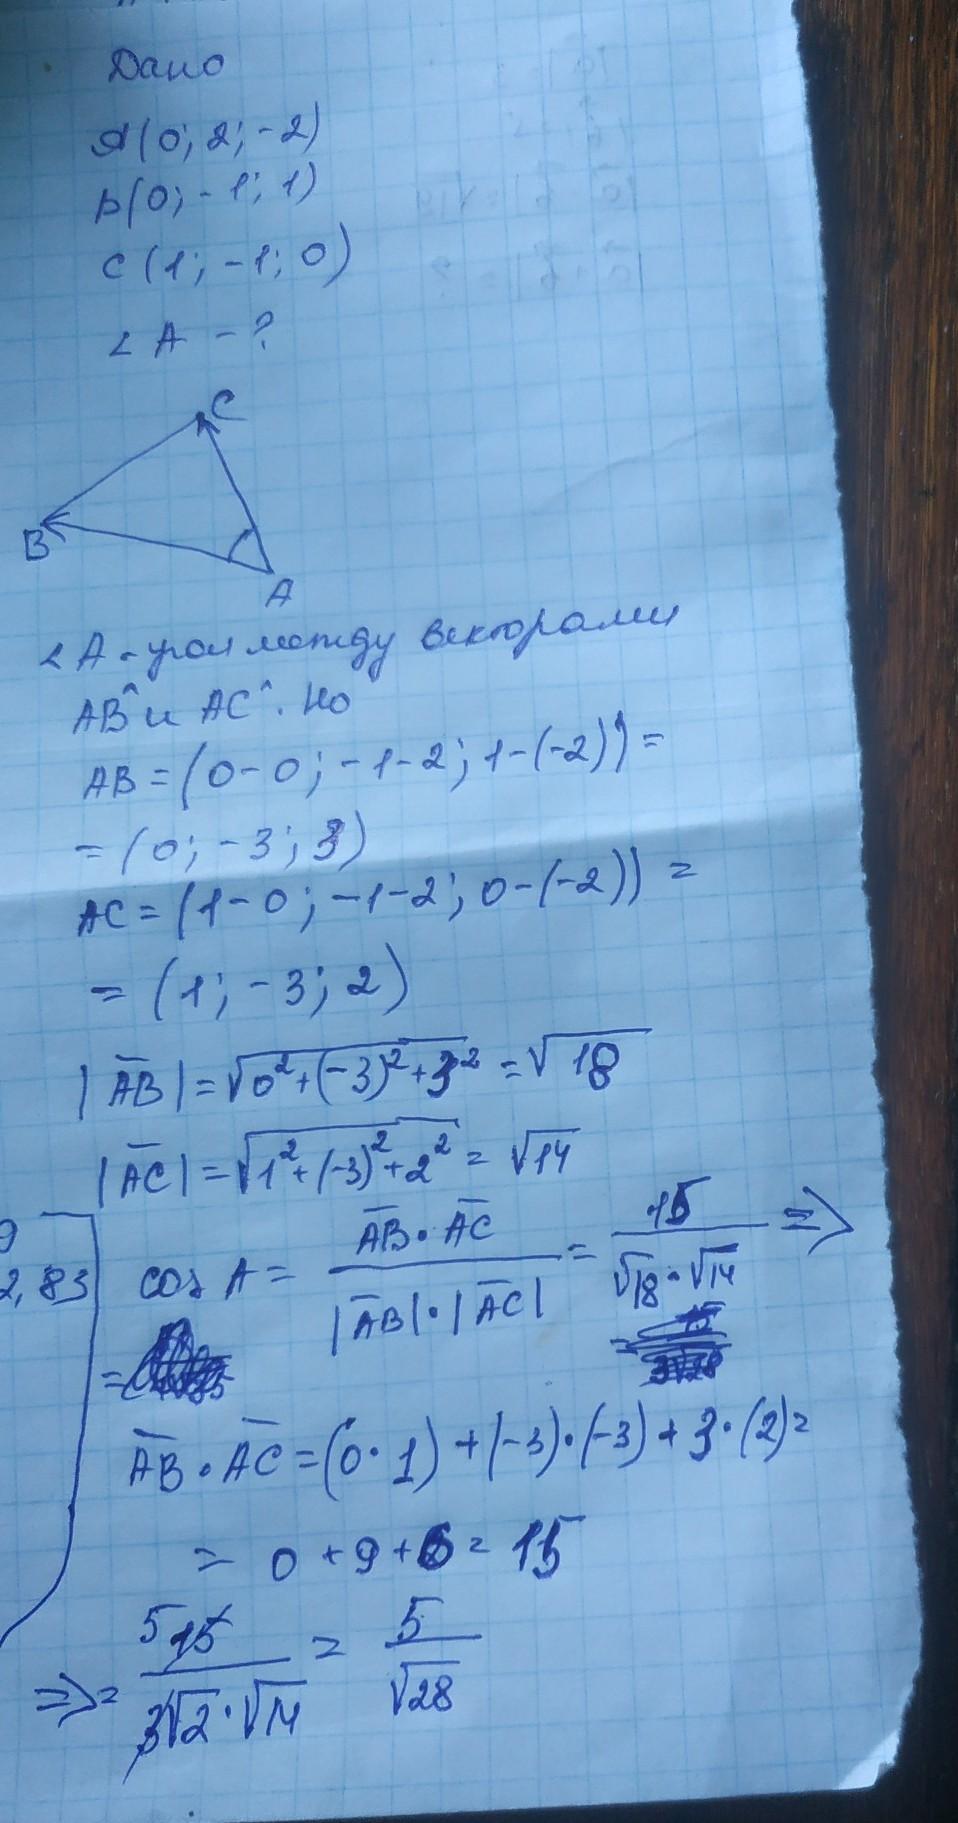 Дано
A(0; 2; -2)
B(0; -1; 1)
C(1; -1; 0)
∠A - ?
C
B
A
∠A - угол между векторами
AB^ и AC^. Но
AB = (0-0; -1-2; 1-(-2)) =
= (0; -3; 3)
AC = (1-0; -1-2; 0-(-2)) =
= (1; -3; 2)
|AB̅| = √(0² + (-3)² + 3²) = √18
|AC̅| = √(1² + (-3)² + 2²) = √14
cos A = (AB̅ · AC̅)/(|AB̅| · |AC̅|) = 15/(√18 · √14) =>
9
2,83
AB̅ · AC̅ = (0 · 1) + (-3) · (-3) + 3 · (2) =
= 0 + 9 + 6 = 15
=> = 5 15/(3√2 · √14) = 5/√28